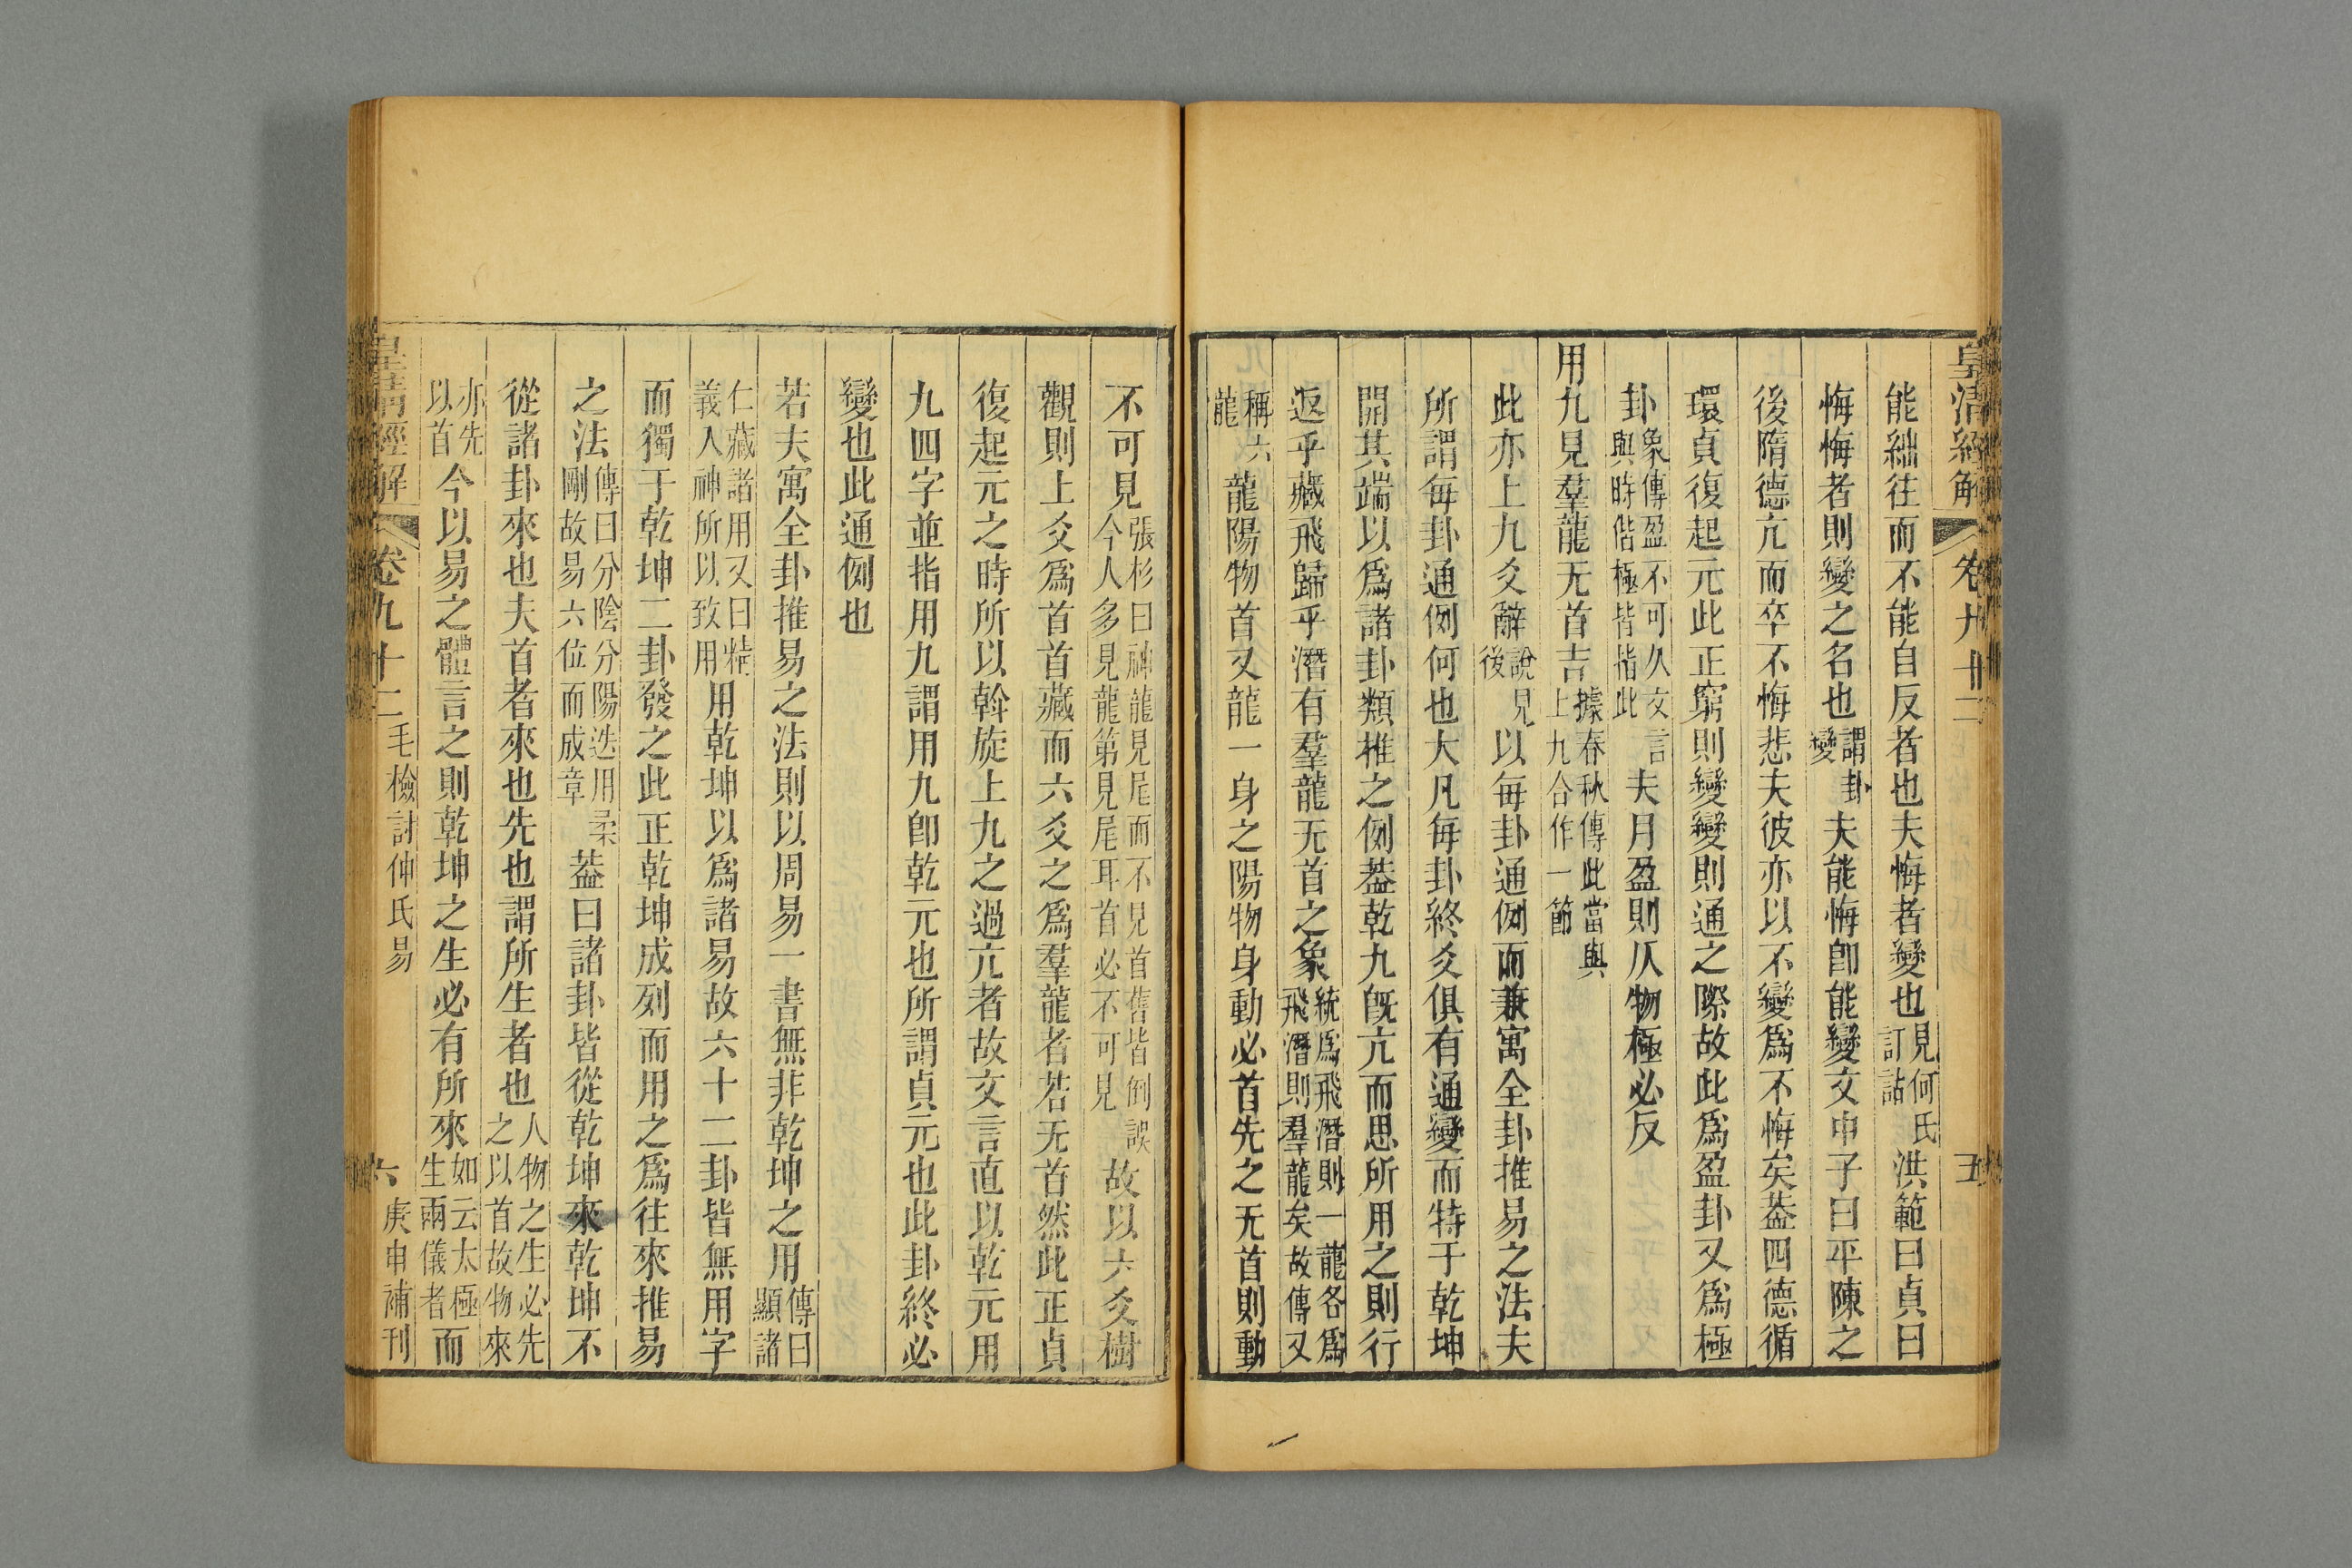 皇清經解 卷九十二 五
能絀往而不能自反者也夫悔者變也見何氏訂詁洪範曰貞曰
悔悔者則變之名也謂卦變夫能悔卽能變文申子曰平陳之
後隋德亢而卒不悔悲夫彼亦以不變爲不悔矣葢四德循
環貞復起元此正窮則變變則通之際故此爲盈卦又爲極
卦象傳盈不可久文言與時偕極皆指此夫月盈則仄物極必反
用九見羣龍无首吉據春秋傳此當與上九合作一節
此亦上九爻辭說見後以每卦通例而兼寓全卦推易之法夫
所謂每卦通例何也大凡每卦終爻俱有通變而特于乾坤
開其端以爲諸卦類推之例葢乾九旣亢而思所用之則行
返乎藏飛歸乎潛有羣龍无首之象統爲飛潛則一龍各爲飛潛則羣龍矣故傳又
稱六龍龍陽物首又龍一身之陽物身動必首先之无首則動
不可見張杉曰神龍見尾而不見首舊皆倒誤今人多見龍第見尾耳首必不可見故以六爻樹
觀則上爻爲首首藏而六爻之爲羣龍者若无首然此正貞
復起元之時所以斡旋上九之過亢者故文言直以乾元用
九四字並指用九謂用九卽乾元也所謂貞元也此卦終必
變也此通例也
若夫寓全卦推易之法則以周易一書無非乾坤之用傳曰顯諸
仁藏諸用又曰精義入神所以致用用乾坤以爲諸易故六十二卦皆無用字
而獨于乾坤二卦發之此正乾坤成列而用之爲往來推易
之法傳曰分陰分陽迭用柔剛故易六位而成章葢曰諸卦皆從乾坤來乾坤不
從諸卦來也夫首者來也先也謂所生者也人物之生必先之以首故物來
亦先以首今以易之體言之則乾坤之生必有所來如云太極生兩儀者而
皇清經解 卷九十二 毛檢討仲氏易 六 庚申補刊